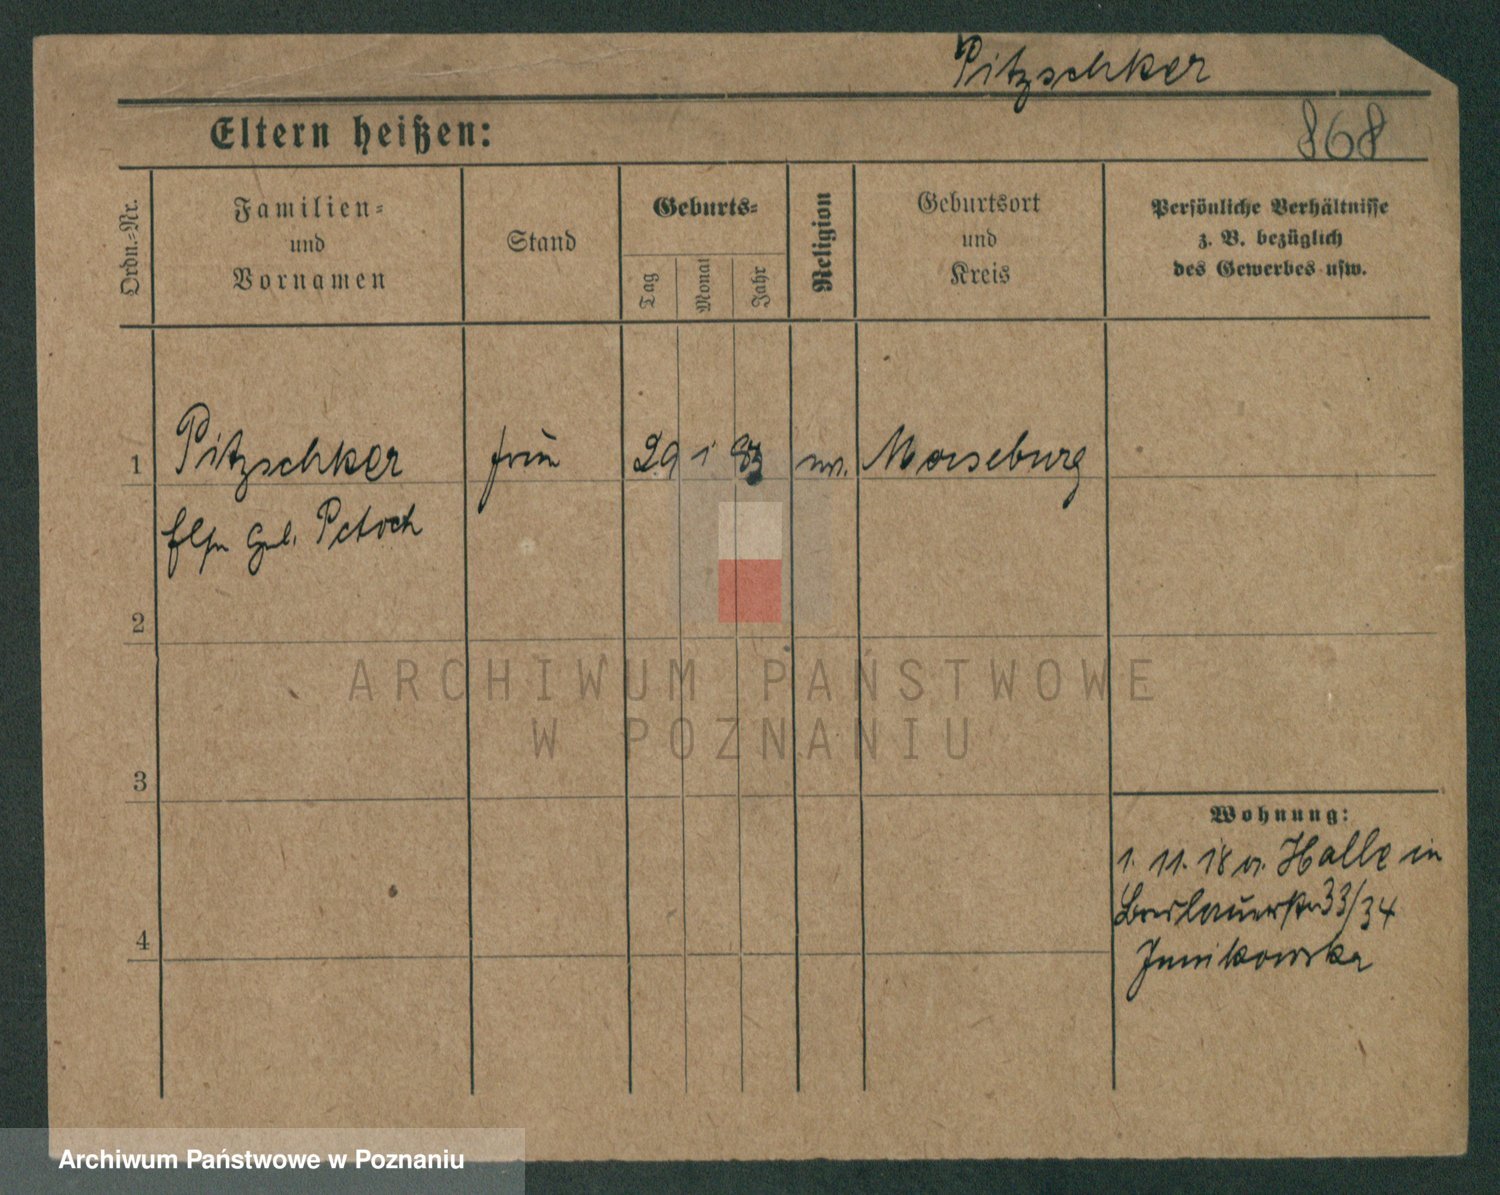 Pitzschker
Eltern heißen:
868
Ordn.-Nr.
Familien-
und
Vornamen
Stand
Geburts-
Tag
Monat
Jahr
Religion
Geburtsort
und
Kreis
Persönliche Verhältnisse
z. B. bezüglich
des Gewerbes usw.
1
Pitzschker
29 1 83
geb.
2
ARCHIWUM PAŃSTWOWE
W POZNANIU
3
Wohnung:
1. 11. 18 Halle in
33/34
4
Archiwum Państwowe w Poznaniu